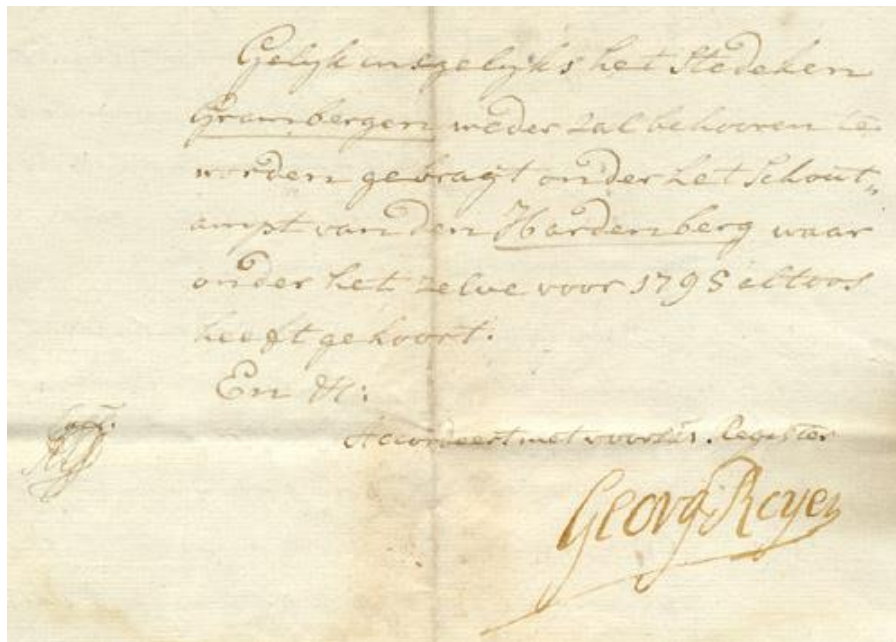 Gelijk insgelijks het Stedeken
Gramsbergen weder zal behooren te
worden gebragt onder het Schout„
ampt van den Hardenberg waar
onder het zelve voor 1795 altoos
heeft gehoort.
En &:
Accordeert met voorsz. Register
Georg: Royer